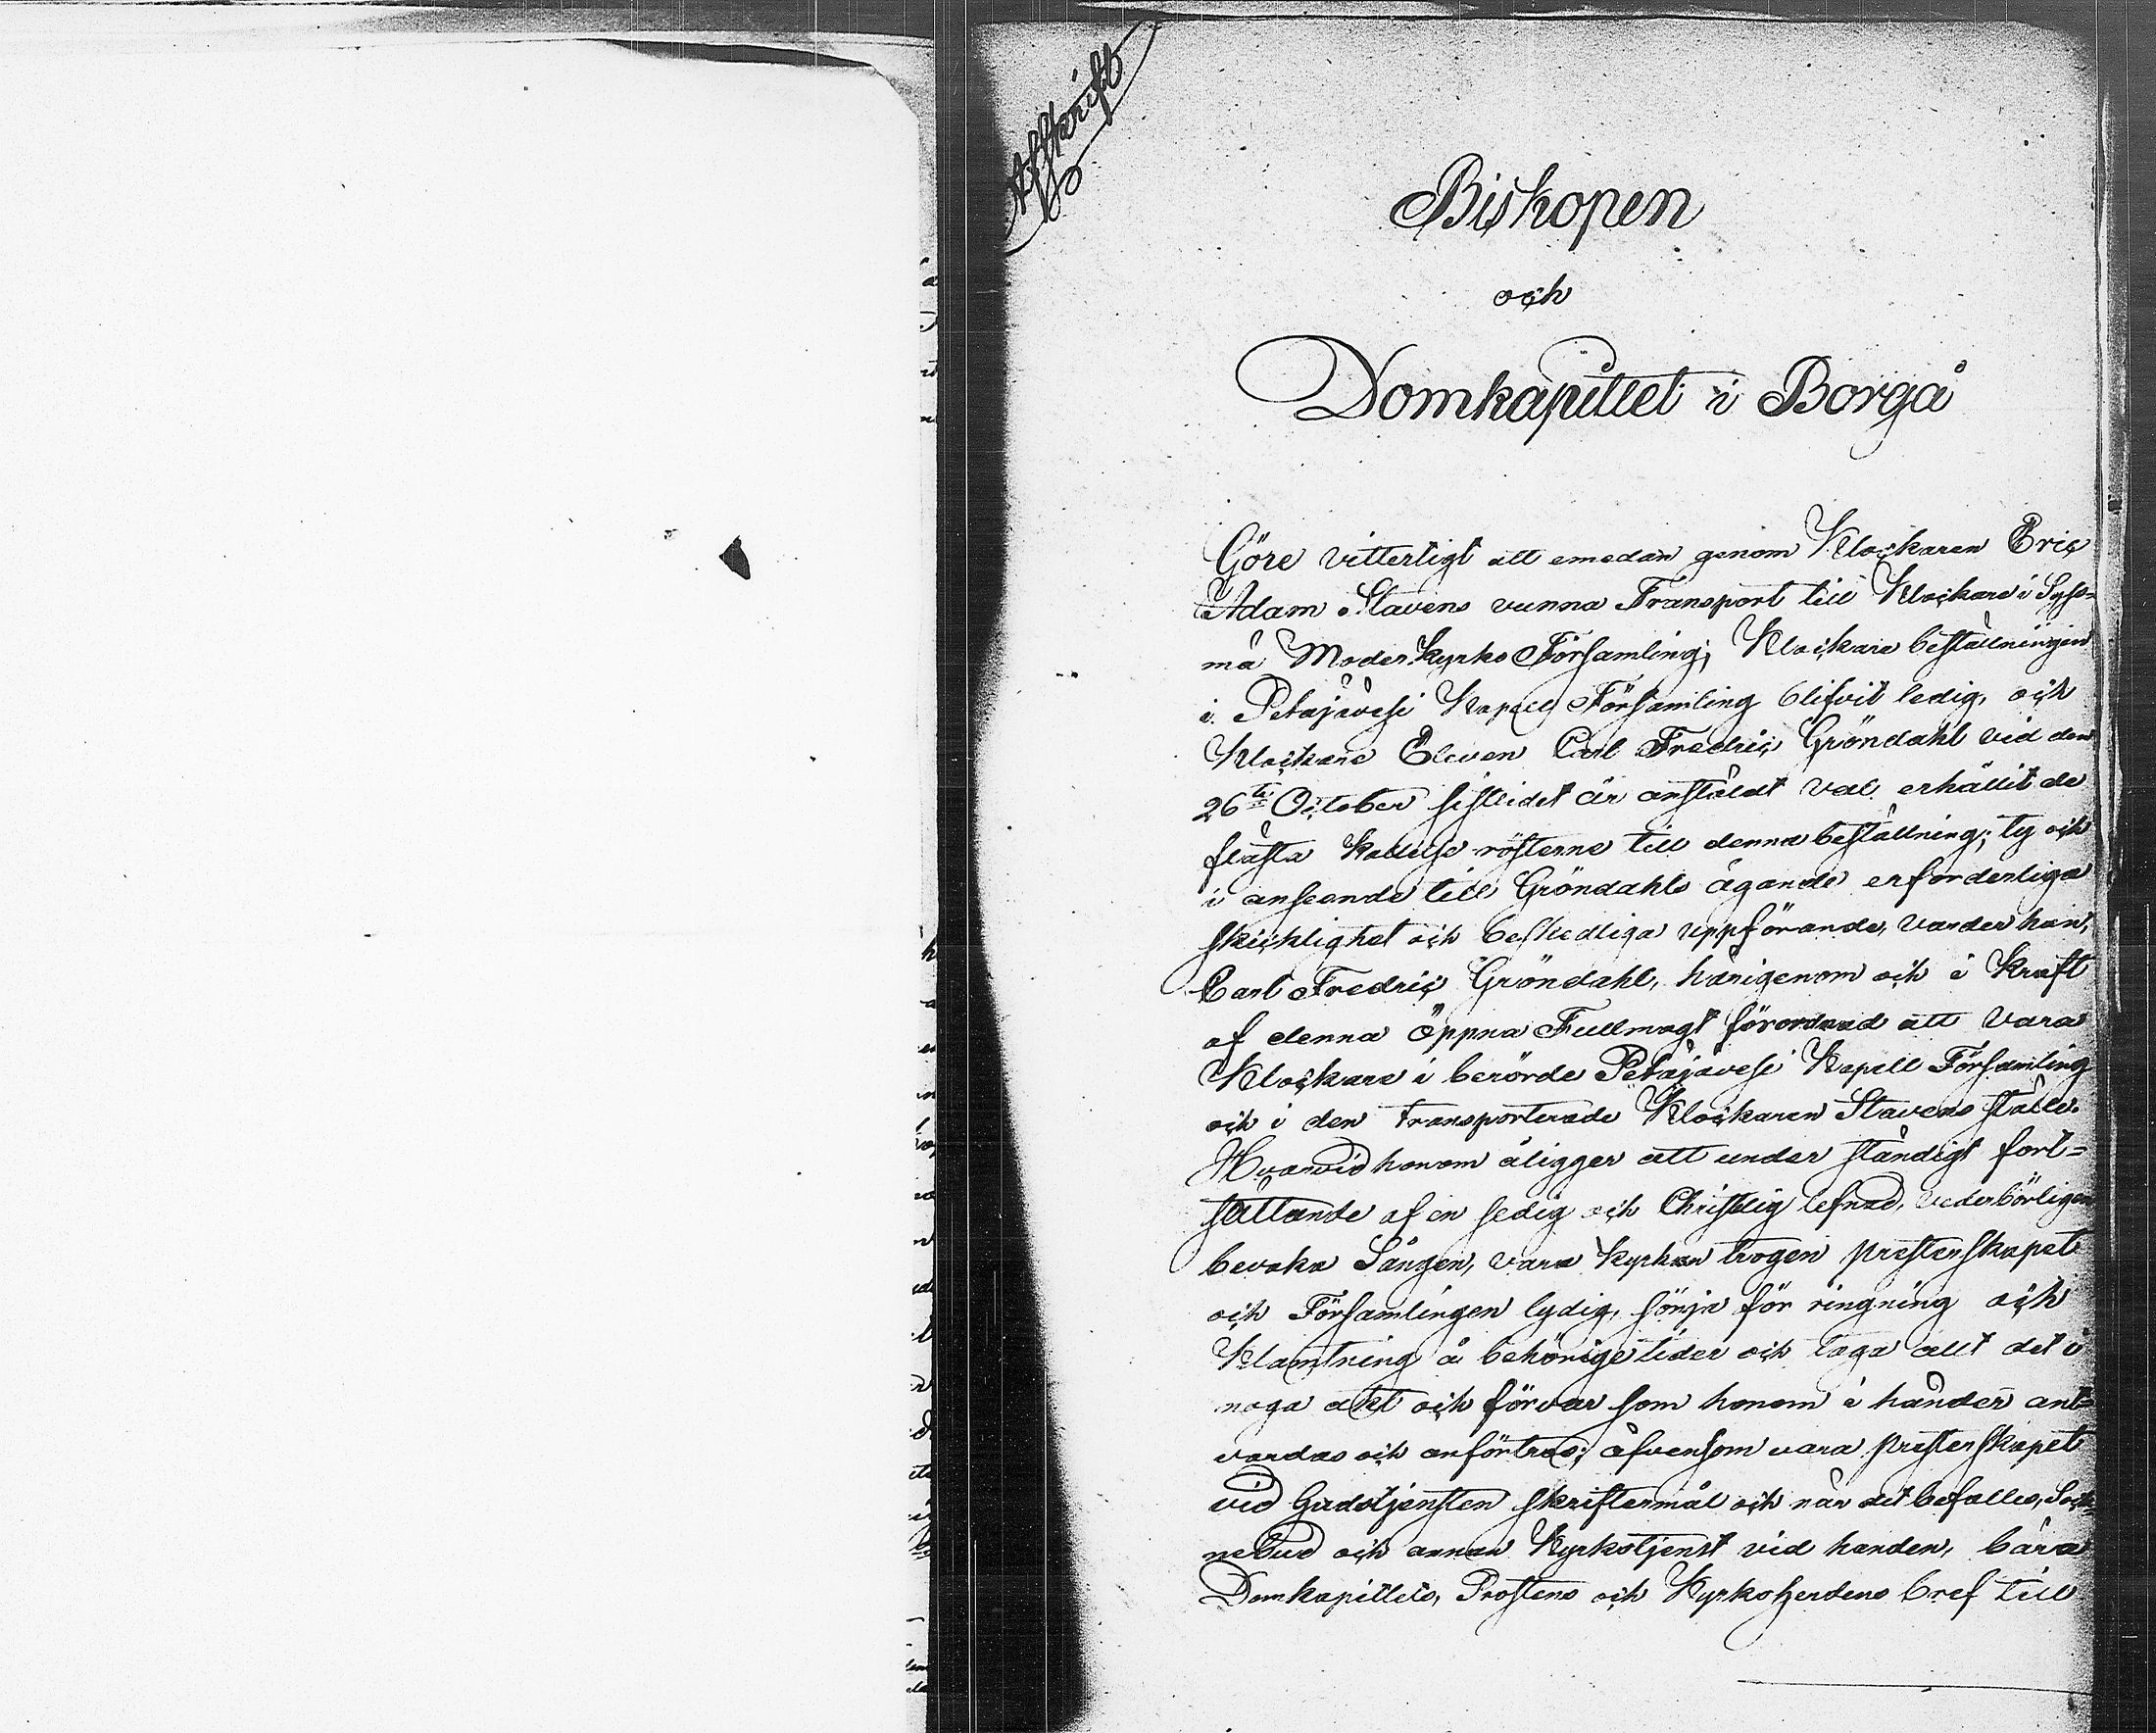 Afskrift
Biskopen
och
Domkapitlet i Borgå
Göre vitterligt att emedan genom Klockaren Eric
Adam Stavens vunna Transport till Klockare i Syss-
mä Moderkyrko Församling, Klockare beställningen
i Petäjävesi Kapell Församling blifvit ledig, och
Klockare Eleven Carl Fredric Gröndahl vid den
26te October sistlidet år anstäldt val erhållit de
flästa kallelse rösterne till denna beställning; ty och
i anseende till Gröndahls ägande erforderliga
skicklighet och beskedliga uppförande, varder han,
Carl Fredric Gröndahl, härigenom och i kraft
af denna öppna Fullmagt förordnad att vara
Klockare i berörde Petäjävesi Kapell Församling
och i den transporterade Klockaren Stavens ställe.
Hvarvid honom åligger att under ständigt fort=
sättande af en sedig och Christlig lefnad, vederbörligen
bevaka Sången, vara kyrkan trogen presterskapet
och Församlingen lydig, sörja för ringning och
Klämtning å behörige tider och taga allt det i
noga akt och förvar som honom i händer ant=
vardas och anförtros; äfvensom vara presterskapet
vid Gudstjensten skriftermål och när det befalles, Sock=
nebud och annan Kyrkotjenst vid handen, bära
Domkapitlets, Prostens och Kyrkoherdens bref till